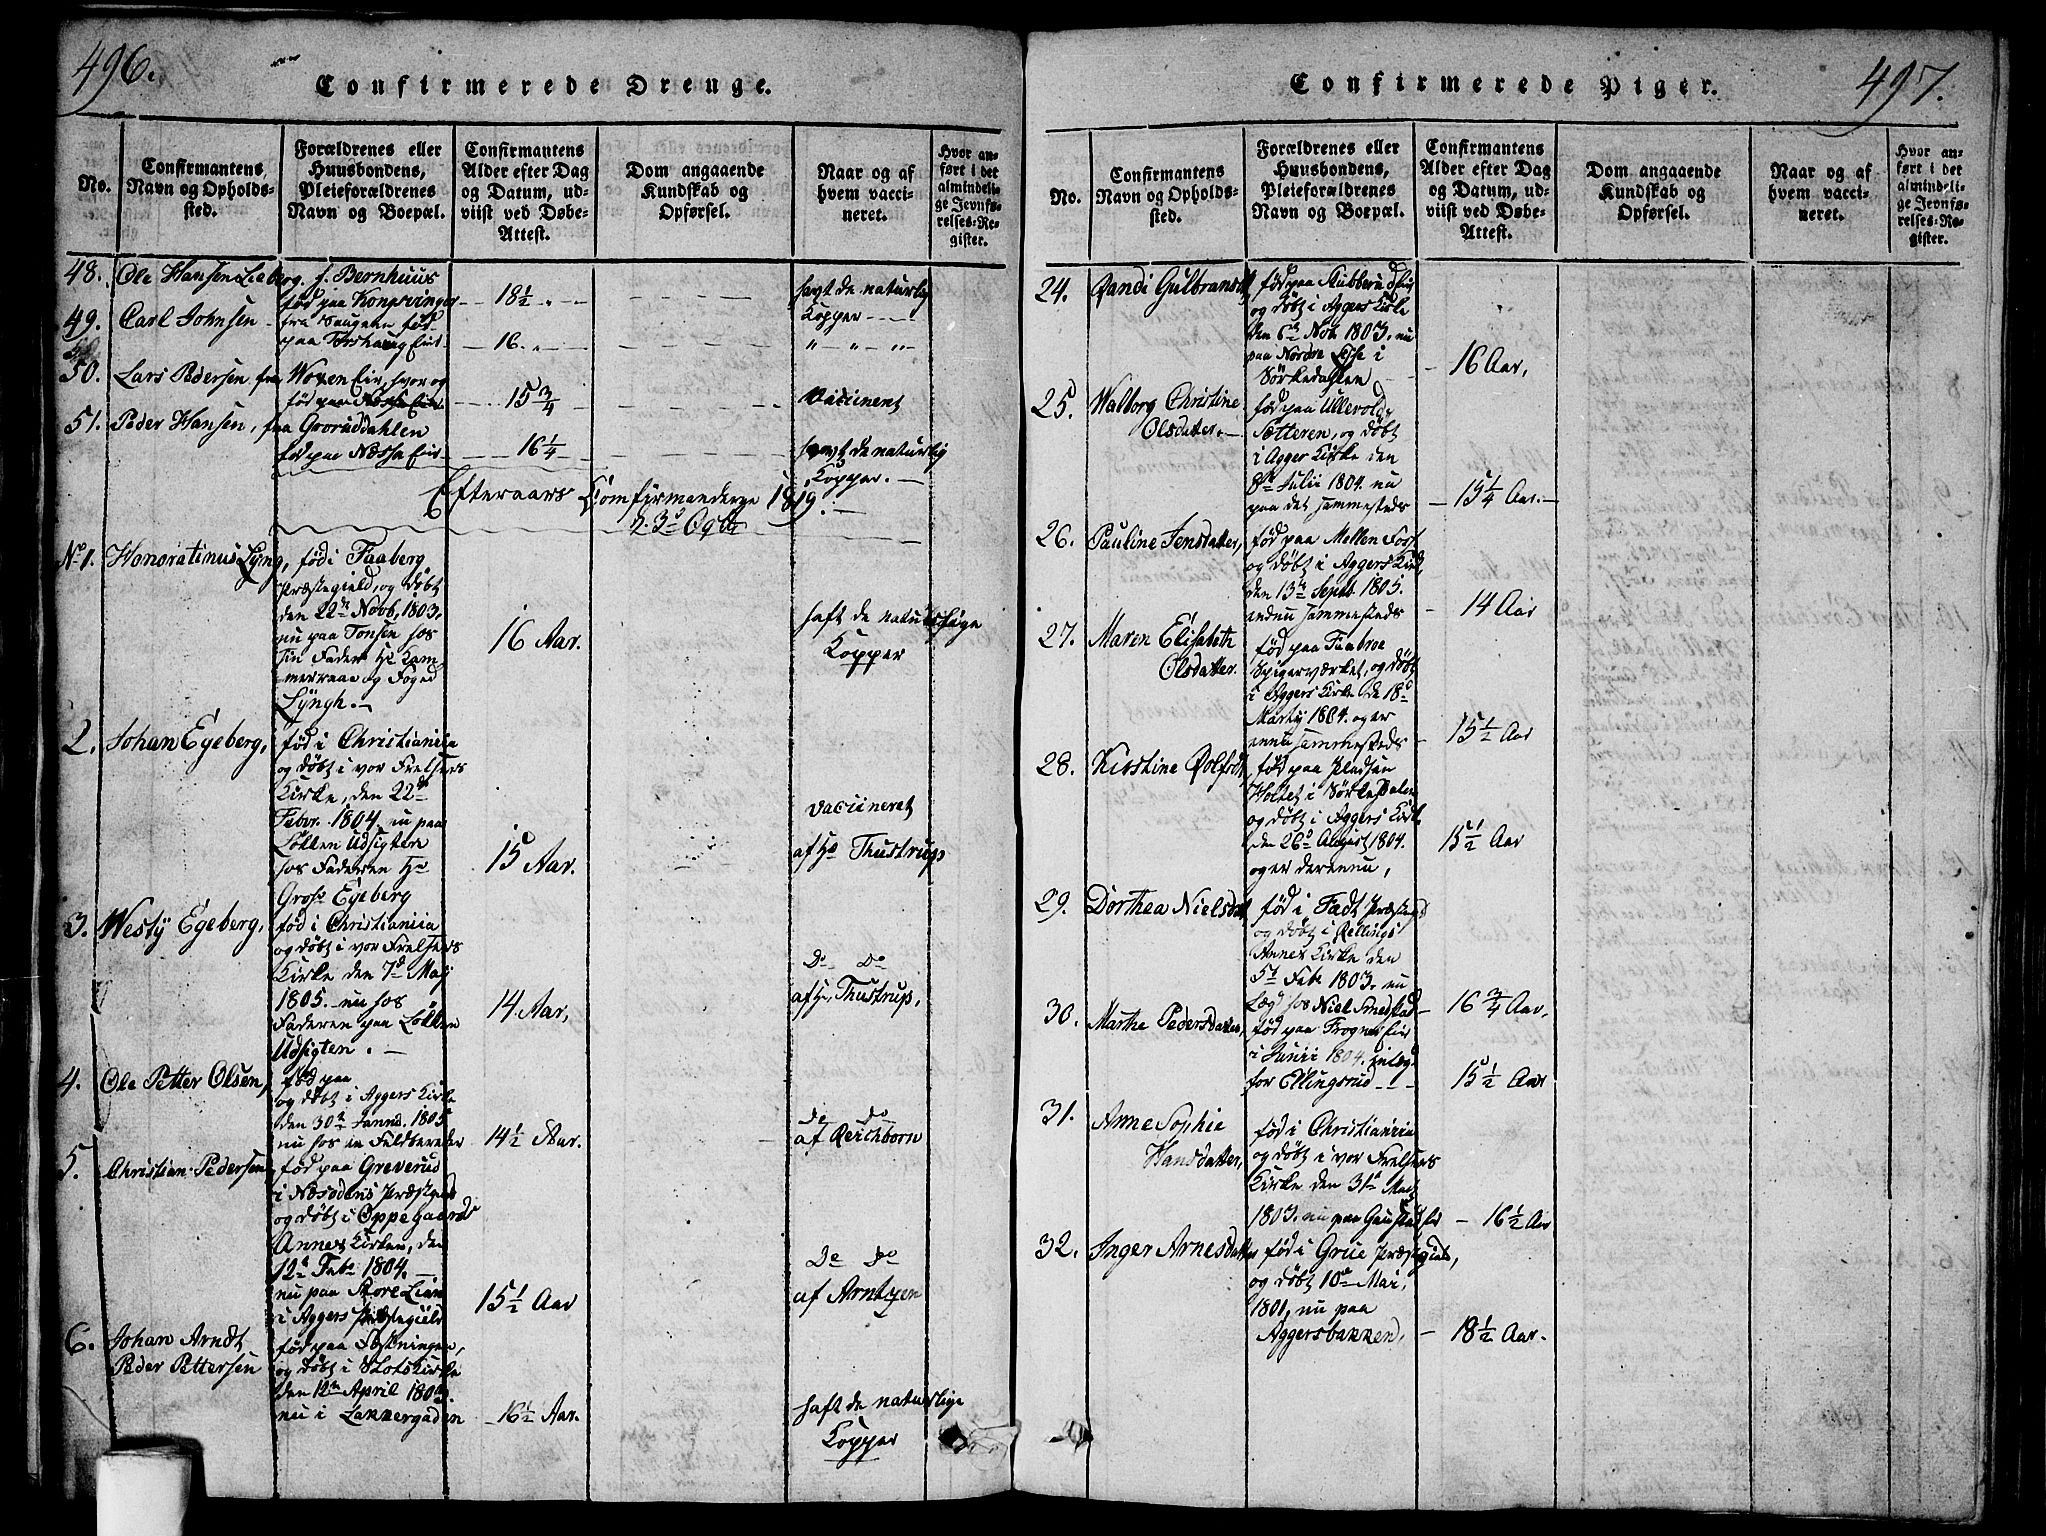 496.
Confirmerede Drenge.
No.
Confirmantens Navn og Opholds-sted.
Forældrenes eller Huusbondens, Pleieforældrenes Navn og Boepæl.
Confirmantens Alder efter Dag og Datum, ud-viist ved Døbe-Attest.
Dom angaaende Kundskab og Opførsel.
Naar og af hvem vacci-neret.
Hvor an-ført i det almindeli-ge Jevnfø-relses-Re-gister.
48. Ole Hansen Leeberg. f. Bernhuus
født paa Kongsvinger — 18½ havt de naturlig
49. Carl Johnsen — fra Saugene født Kopper
paa Torshaug Eier — 16. " — " — "
50. Lars Pedersen fra Woxen Eie, hvor og
født paa Næssa Eie — 15¾ Vacinent
51. Peder Hansen, fra Gooruddahlen
født paa Næssa Eie — 16¼ havt de naturlig
Kopper. —
Efteraars Comfirmanderne 1819. —
d. 3d Octb
No 1. Honoratinus Lyng, født i Faaberg
Præstegield, og døbt
den 22de Novb. 1803.
nu paa Tonsen hos
sin Fader Hr Kam-
merraae og Foged
Lyngh. —
16 Aar.
haft de naturlige
Kopper
2. Johan Egeberg, født i Christiania
og døbt i vor Frelsers
Kirke, den 22de
Febr. 1804. nu paa
Løkken Udsigten
hos Faderen Hr
Gros Egeberg
15 Aar.
vacineret
af Hr Thustrup
3. Westy Egeberg, født i Christiania
og døbt i vor Frelsers
Kirke den 7d Maj
1805. nu hos
Faderen paa Løkken
Udsigten. —
14 Aar,
Do Do
af Hr. Thustrup,
4. Ole Petter Olsen, født paa
og døbt i Aggers Kirke
den 30te Jannd. 1805
nu hos en Feldbereder
14½ Aar.
Do Do
af Reichborn
5. Christian Pedersen født paa Greverud
i Næsodens Præsteg
og døbt i Oppegaards
Annex Kirken, den
12te Feb 1804. —
nu paa Store Lian
i Aggers Præstegield
15½ Aar
Do Do
af Arntzen
6. Johan Arndt
Peder Pettersen
født paa Festningen,
og døbt i Slots Kirke
den 12te April 180
nu i Lakkergaden
— 16½ Aar.
haft de naturlige
Kopper
497.
Confirmerede Piger.
No.
Confirmantens Navn og Opholds-sted.
Forældrenes eller Huusbondens, Pleieforældrenes Navn og Boepæl.
Confirmantens Alder efter Dag og Datum, ud-viist ved Døbe-Attest.
Dom angaaende Kundskab og Opførsel.
Naar og af hvem vacci-neret.
Hvor an-ført i det almindeli-ge Jevnfø-relses-Re-gister.
24. Randi Gulbransd født paa Stubberud Eie
og døbt i Aggers Kirke
den 6te Nob 1803, nu
paa Nordre
Sørkedahlen — 16 Aar,
25. Walborg Christine
Olsdatter. —
født paa Ullevold
Sætteren, og døbt
i Agger Kirke den
8de Julii 1804. nu
paa det sammesteds — 15¼ Aar. —
26. Pauline Jensdatter, født paa Mellen Foss
og døbt i Aggers Kirk,
den 13de Septb 1805.
endnu sammesteds — 14 Aar
27. Maren Elisabeth
Olsdatter.
født paa Faabroe
Spigerværket, og døbt
i Aggers Kirke de 18d
Marty 1804. og er
ennu sammesteds — 15½ Aar
28. Kirstine Rolfsdt født paa Pladsen
Holtet i Sørkedalen
og døbt i Aggers Kirk
den 26d August 1804.
og er der ennu,
15½ Aar
29. Dorthea Nielsdat født i Fadt Præsteg
og døbt i Rellings
Annex Kirke den
5t Feb 1803. nu
Lægd hos Niel — 16¾ Aar,
30. Marthe Pedersdatter, født paa Frogner Eie
i Junii 1804. inlægd
for Ellingsrud — 15½ Aar
31. Anne Sophie
Hansdatter,
født i Christiania
og døbt i vor Frelsers
Kirke den 31d Maj
1803. nu paa Gaustad — 16½ Aar
32. Inger Arnesdatter født i Grue Præstegield,
og døbt 10de Mai,
1801, nu paa
Aggersbakken, — 18½ Aar.